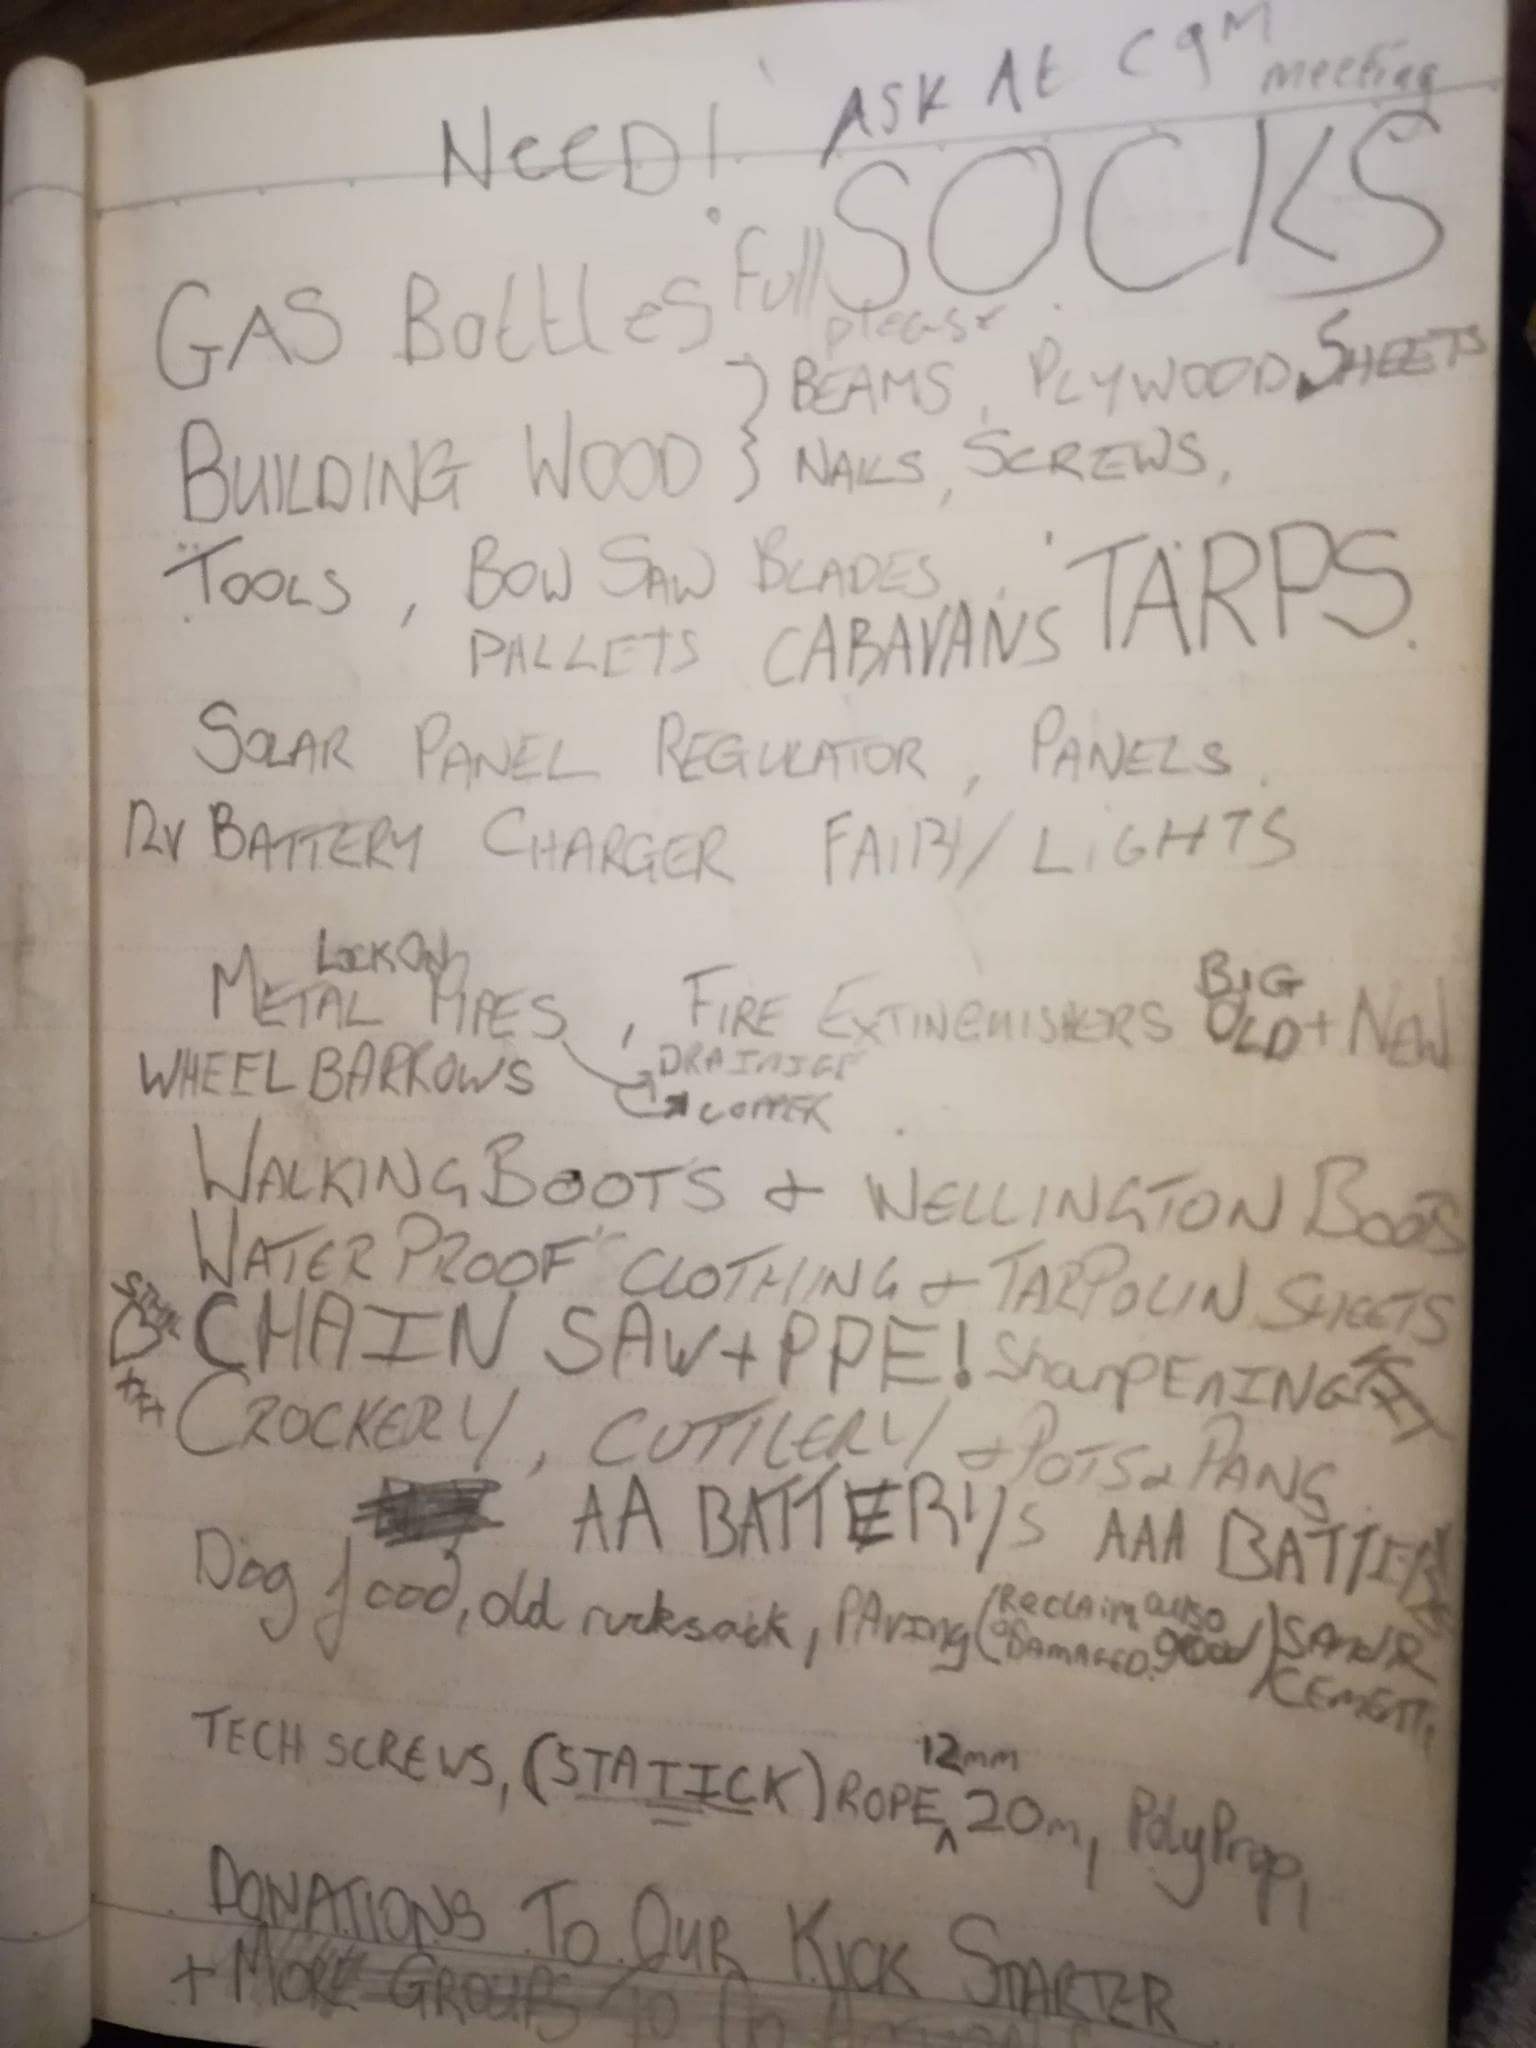 NEED! ASK At CGM meeting
SOCKS
GAS Bottles Full please
BUILDING WOOD } BEAMS, PLYWOOD SHEETS
NAILS, SCREWS,
TOOLS, BOW SAW BLADES, TARPS.
PALLETS CARAVANS
SOLAR PANEL REGULATOR, PANELS.
12V BATTERY CHARGER FAIRY LIGHTS
LOCK ON
METAL PIPES, FIRE EXTINGUISHERS BIG OLD + NEW
WHEELBARROWS DRAINIGE
COPPER
WALKING BOOTS & WELLINGTON BOOTS
WATERPROOF CLOTHING & TARPOLIN SHEETS
CHAIN SAW + PPE! SharpENING KIT
CROCKERY, CUTTLERY & POTS & PANS
AA BATTERYS AAA BATTERIES
Dog food, old rucksack, PAVING (RECLAIM or DAMAGED also good) SAND & CEMETT,
TECH SCREWS, (STATICK) ROPE, 12mm 20m, PolyProp,
DONATIONS TO OUR KICK STARTER
+ MORE GROUPS TO